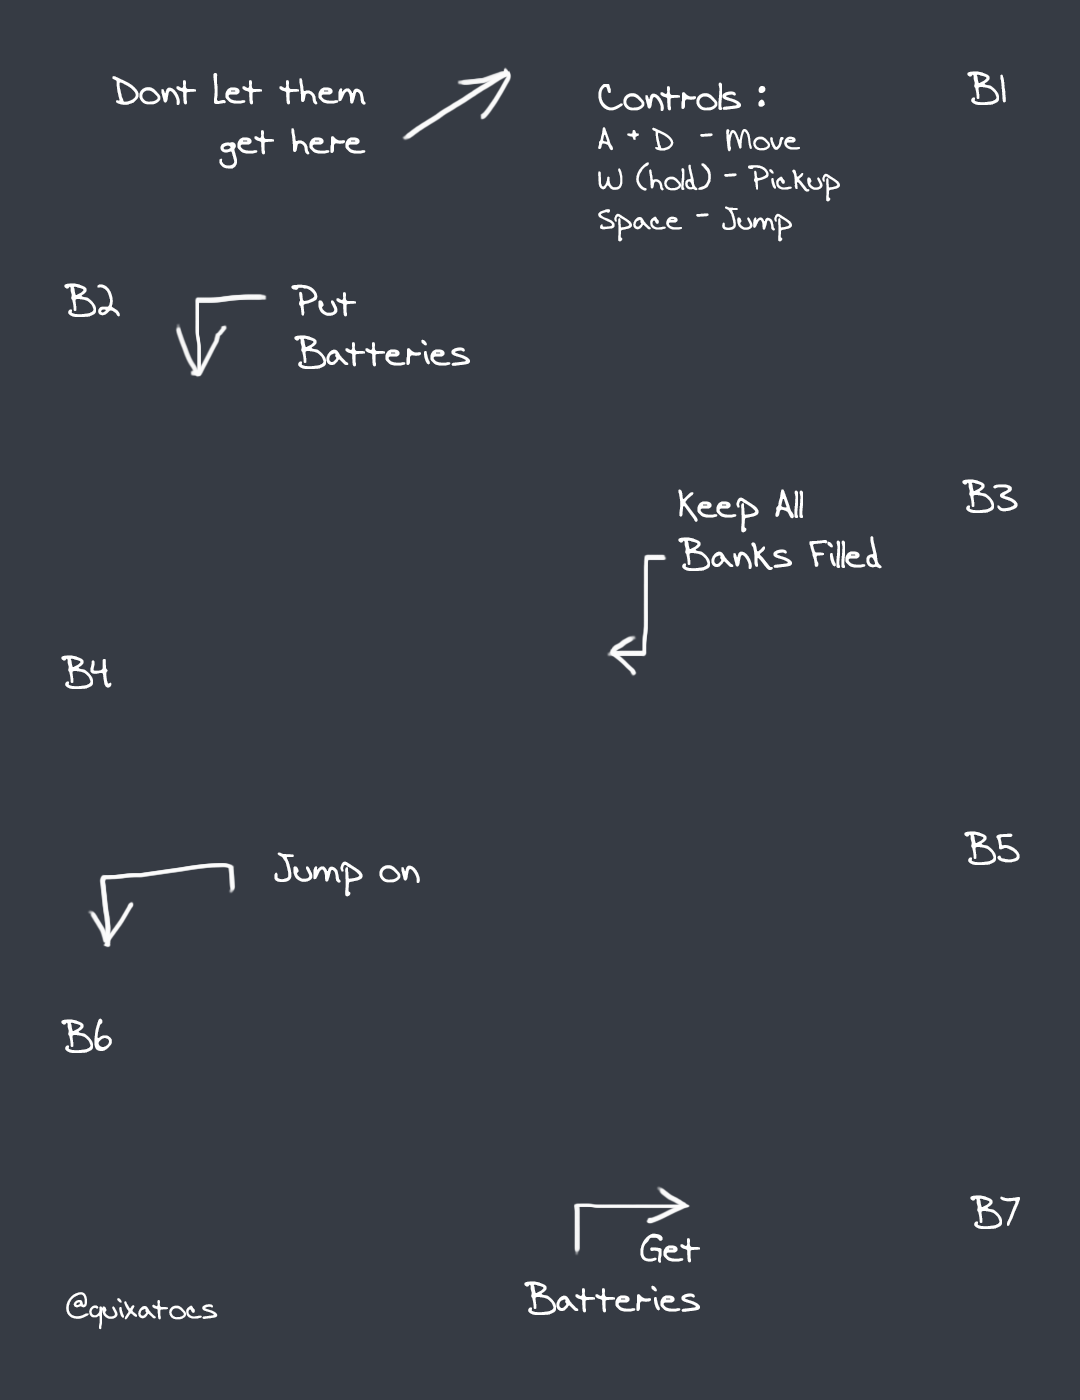 Dont Let them
get here
Controls :
A + D - Move
W (hold) - Pickup
Space - Jump
B1
B2
Put
Batteries
Keep All
Banks Filled
B3
B4
Jump on
B5
B6
Get
Batteries
B7
@quixatocs